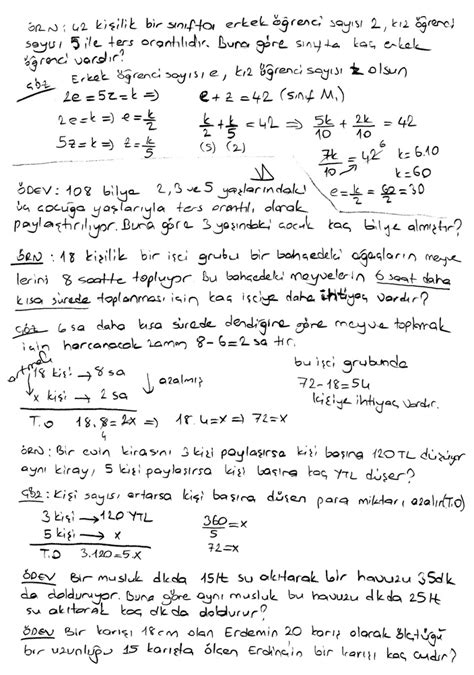 ÖRN: 42 kişilik bir sınıfta erkek öğrenci sayısı 2, kız öğrenci
sayısı 5 ile ters orantılıdır. Buna göre sınıfta kaç erkek
öğrenci vardır?
Çöz Erkek öğrenci sayısı e, kız öğrenci sayısı z olsun
2e=5z=k => e+z=42 (sınıf M.)
2e=k => e=k/2 k/2+k/5=42 => 5k/10+2k/10=42
5z=k => z=k/5 (5) (2) 7k/10=42 6 k=6.10
k=60
e=k/2=60/2=30
ÖDEV: 108 bilye 2, 3 ve 5 yaşlarındaki
üç çocuğa yaşlarıyla ters orantılı olarak
paylaştırılıyor. Buna göre 3 yaşındaki çocuk kaç bilye almıştır?
ÖRN: 18 kişilik bir işçi grubu bir bahçedeki ağaçların meyve
lerini 8 saatte topluyor Bu bahçedeki meyvelerin 6 saat daha
kısa sürede toplanması için kaç işçiye daha ihtiyaç vardır?
Çöz 6 sa daha kısa sürede dendiğine göre meyve toplamak
için harcanacak zaman 8-6=2 sa tir.
artmalı 18 kişi → 8 sa azalmış bu işçi grubunda
x kişi → 2 sa 72-18=54
T.O 18.8=2x => 18.4=x => 72=x kişiye ihtiyaç vardır.
4
ÖRN: Bir evin kirasını 3 kişi paylaşırsa kişi başına 120 TL düşüyor
aynı kirayı, 5 kişi paylaşırsa kişi başına kaç YTL düşer?
Çöz: Kişi sayısı artarsa kişi başına düşen para miktarı azalır(T.O)
3 kişi → 120 YTL 360/5=x
5 kişi → x 72=x
T.O 3.120=5.x
ÖDEV Bir musluk dkda 15 lt su akıtarak bir havuzu 35dk
da dolduruyor. Buna göre aynı musluk bu havuzu dkda 25 lt
su akıtarak kaç dk da doldurur?
ÖDEV Bir karışı 18cm olan Erdemin 20 karış olarak ölçtüğü
bir uzunluğu 15 karışla ölçen Erdinç'in bir karışı kaç cmdir?